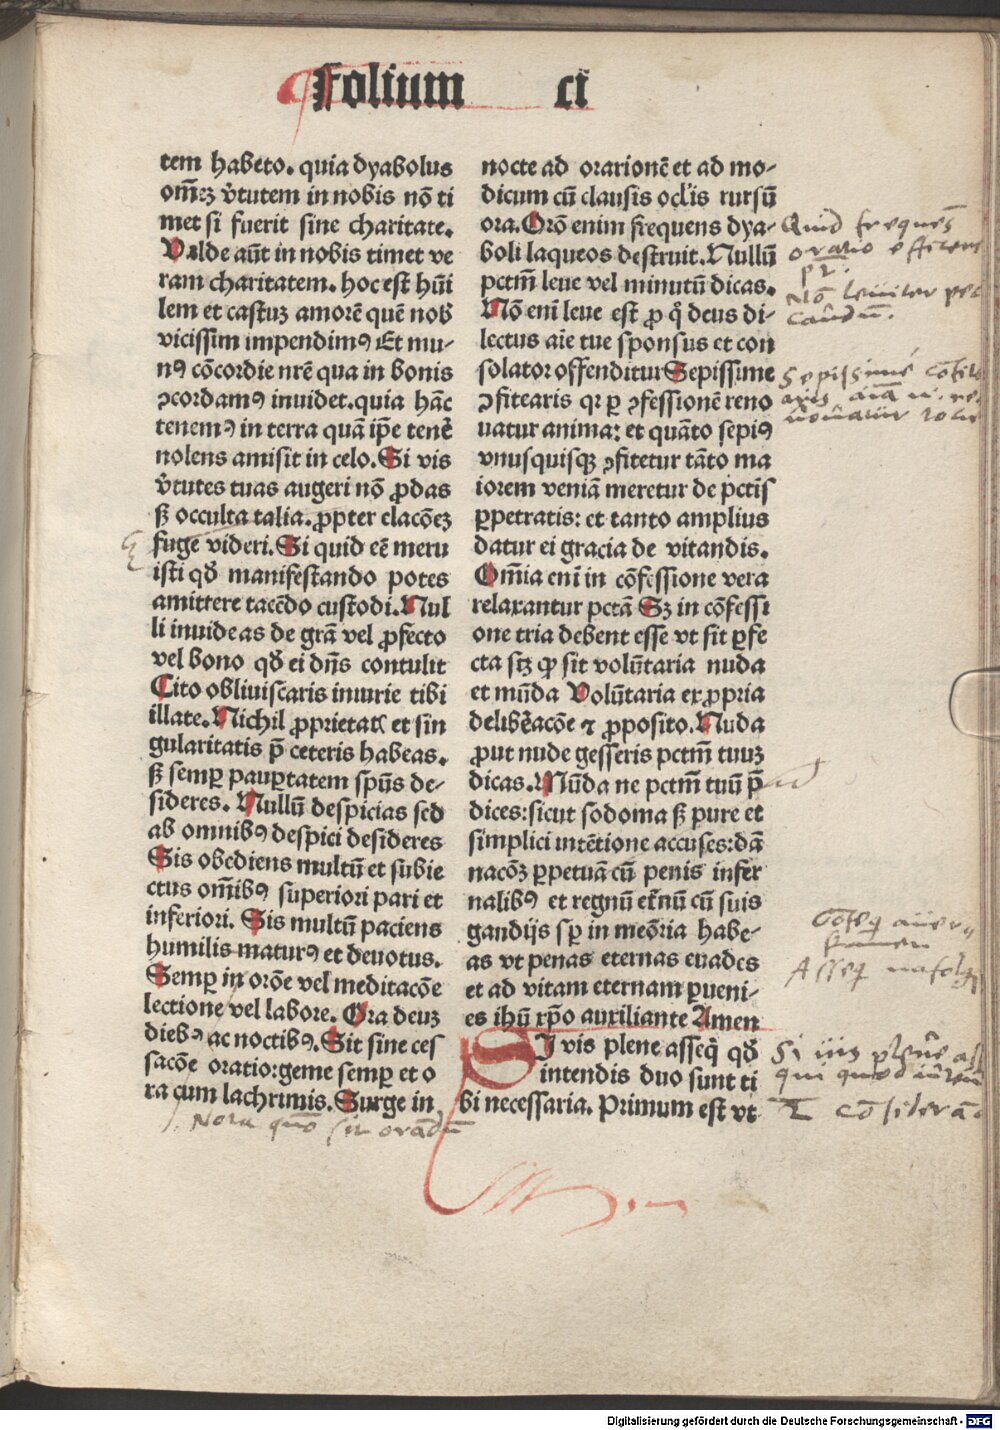 Folium ci
tem habeto. quia dyabolus
om̄eꝫ v̓tutem in nobis nō ti
met si fuerit sine charitate.
Valde aūt in nobis timet ve
ram charitatem. hoc est hūi
lem et castuꝫ amorē quē nob
vicissim impendimꝰ Et mu-
nꝰ cōcordie nr̄e qua in bonis
ꝯcordamꝰ inuidet. quia hāc
tenemꝰ in terra quā ip̄e tenē
nolens amisit in celo. Si vis
v̓tutes tuas augeri nō ꝓdas
ſꝫ occulta talia. ꝓpter elacōeꝫ
fuge videri. Si quid eē meru
isti qđ manifestando potes
amittere tacēdo custodi. Nul
li inuideas de grā vel ꝓfecto
vel bono qđ ei dn̄s contulit
Cito obliuiscaris iniurie tibi
illate. Nichil ꝓprietatꝭ et sin
gularitatis p̄ ceteris habeas.
ſꝫ semꝑ pauꝑtatem spūs de-
sideres. Nullū despicias sed
ab omnibꝰ despici desideres
Sis obediens multū et subie
ctus om̄ibꝰ superiori pari et
inferiori. Sis multū paciens
humilis maturꝰ et deuotus.
Semꝑ in orōe vel meditacōe
lectione vel labore. Ora deuꝫ
diebꝰ ac noctibꝰ. Sit sine ces
sacōe oratio: geme semꝑ et o
ra cum lachrimis. Surge in
nocte ad orarionē et ad mo-
dicum cū clausis ocl̓is rursū
ora. Orō enim frequens dya-
boli laqueos destruit. Nullū
pctm̄ leue vel minutū dicas.
Nō eni̅ leue est ꝓ q̊ deus di-
lectus aīe tue sponsus et con
solator offenditur Sepissime
ꝯfitearis qꝛ ꝑ ꝯfessionē reno
uatur anima: et quāto sepiꝰ
vnusquisqꝫ ꝯfitetur tāto ma
iorem veniā meretur de pctīs
ꝑpetratis: et tanto amplius
datur ei gracia de vitandis.
Om̄ia eni̅ in cōfessione vera
relaxantur pctā Sꝫ in cōfessi
one tria debent esse vt sit ꝑfe
cta scꝫ ꝙ sit volūtaria nuda
et mūda Voluntaria ex ꝓpria
delibēacōe ⁊ ꝓposito. Nuda
ꝓut nude gesseris pctm̄ tuuꝫ
dicas. Mūda ne pctm̄ tuū p̄
dices: sicut sodoma ſꝫ pure et
simplici intētione accuses: dā
nacōꝫ ꝑpetuā cū penis infer
nalibꝰ et regnū et̓nū cū suis
gandijs sꝑ in meōria habe-
as vt penas eternas euades
et ad vitam eternam ꝑueni-
es ihū xp̄o auxiliante Amen
SI vis plene asseq̄ qđ
intendis duo sunt ti
bi necessaria. Primum est vt
Quid frequēs
oratio efficere
Nō leuiter pec
candū.
Sepissime cōfite
Si uis plene as
qui quod intend
Nota quō sit orandū